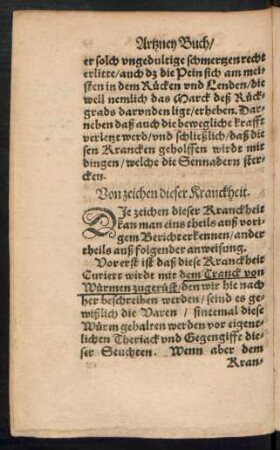 Artzney Buch/
er solch vngedultige schmertzen recht
erlitte/ auch dz die Pein sich am mei-
sten in dem Rücken vnd Lenden/ die
weil nemlich das Marck deß Rück-
grads darunden ligt/ erheben. Dar-
neben daß auch die bewegliche krafft
verletzt werd/ vnd schließlich/ daß die
sen Krancken geholffen wirdt mit
dingen/ welche die Sennadern ster-
cken.
Von zeichen dieser Kranckheit.
DIe zeichen dieser Kranckheit
kan man eins theils auß vori-
gem Bericht erkennen/ ander
theils auß folgender anweisung.
Vor erst ist daß diese Kranckheit
Curiert wirdt mit dem Tranck von
Würmen zugerüst/ den wir hie nach
her beschreiben werden/ seind es ge-
wißlich die Varen/ sintemal diese
Würm gehalten werden vor eigent-
lichen Theriack vnd Gegengifft die-
ser Seuchten. Wenn aber dem
Kran-